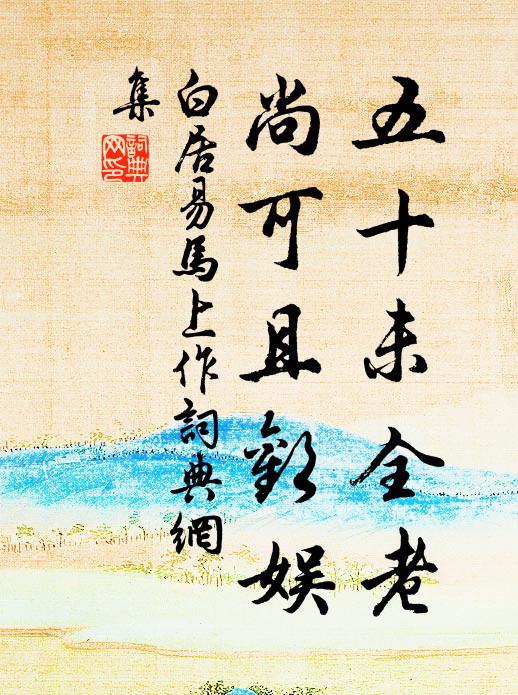 五十未全老
尚可且歡娛
白居易馬上作詞典網
集
詞典
网印